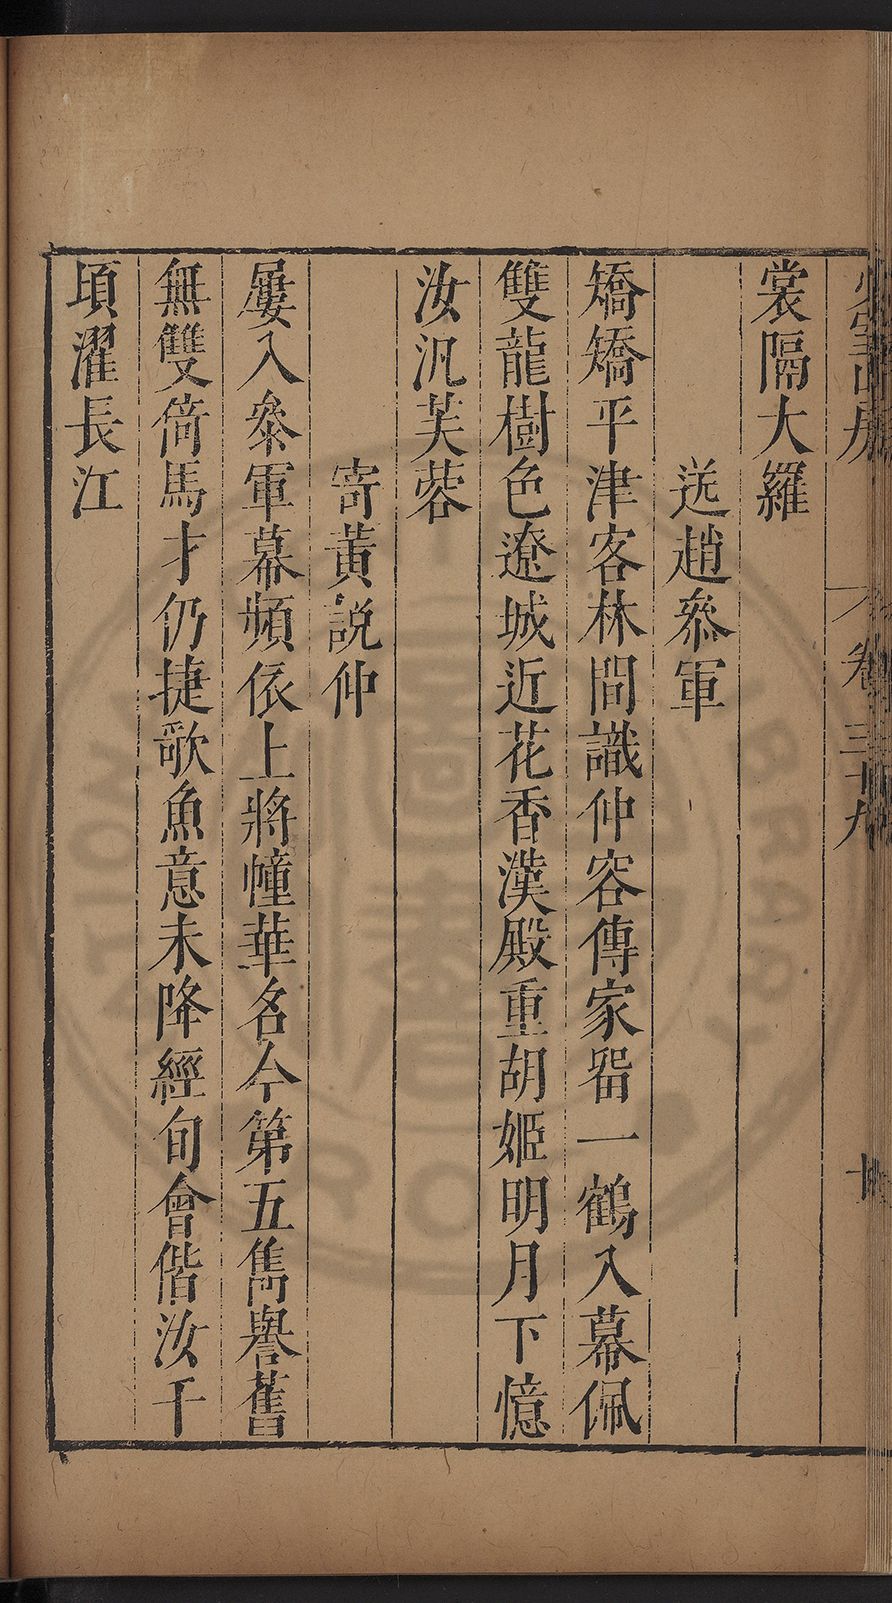 少室山房 卷三十九 十
裳隔大羅
送趙參軍
矯矯平津客林間識仲容傳家畱一鶴入幕佩
雙龍樹色遼城近花香漢殿重胡姬明月下憶
汝汎芙蓉
寄黃説仲
屢入參軍幕頻依上將幢華名今第五雋譽舊
無雙倚馬才仍捷歌魚意未降經旬會偕汝千
頃濯長江